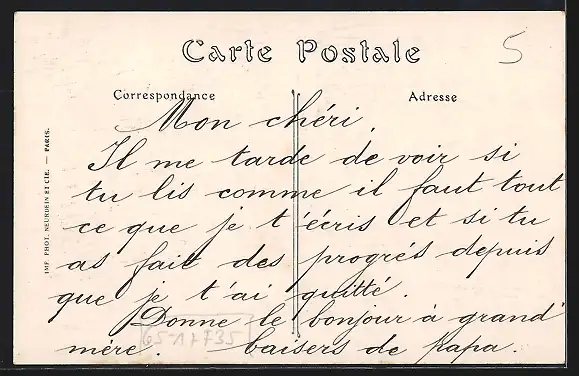 Carte Postale
5
Correspondance
Adresse
Mon chéri,
Il me tarde de voir si
tu lis comme il faut tout
ce que je t'écris et si tu
as fait des progrés depuis
que je t'ai quitté.
Donne le bonjour à grand'
mère. baisers de Papa.
IMP. PHOT. NEURDEIN ET CIE. — PARIS.